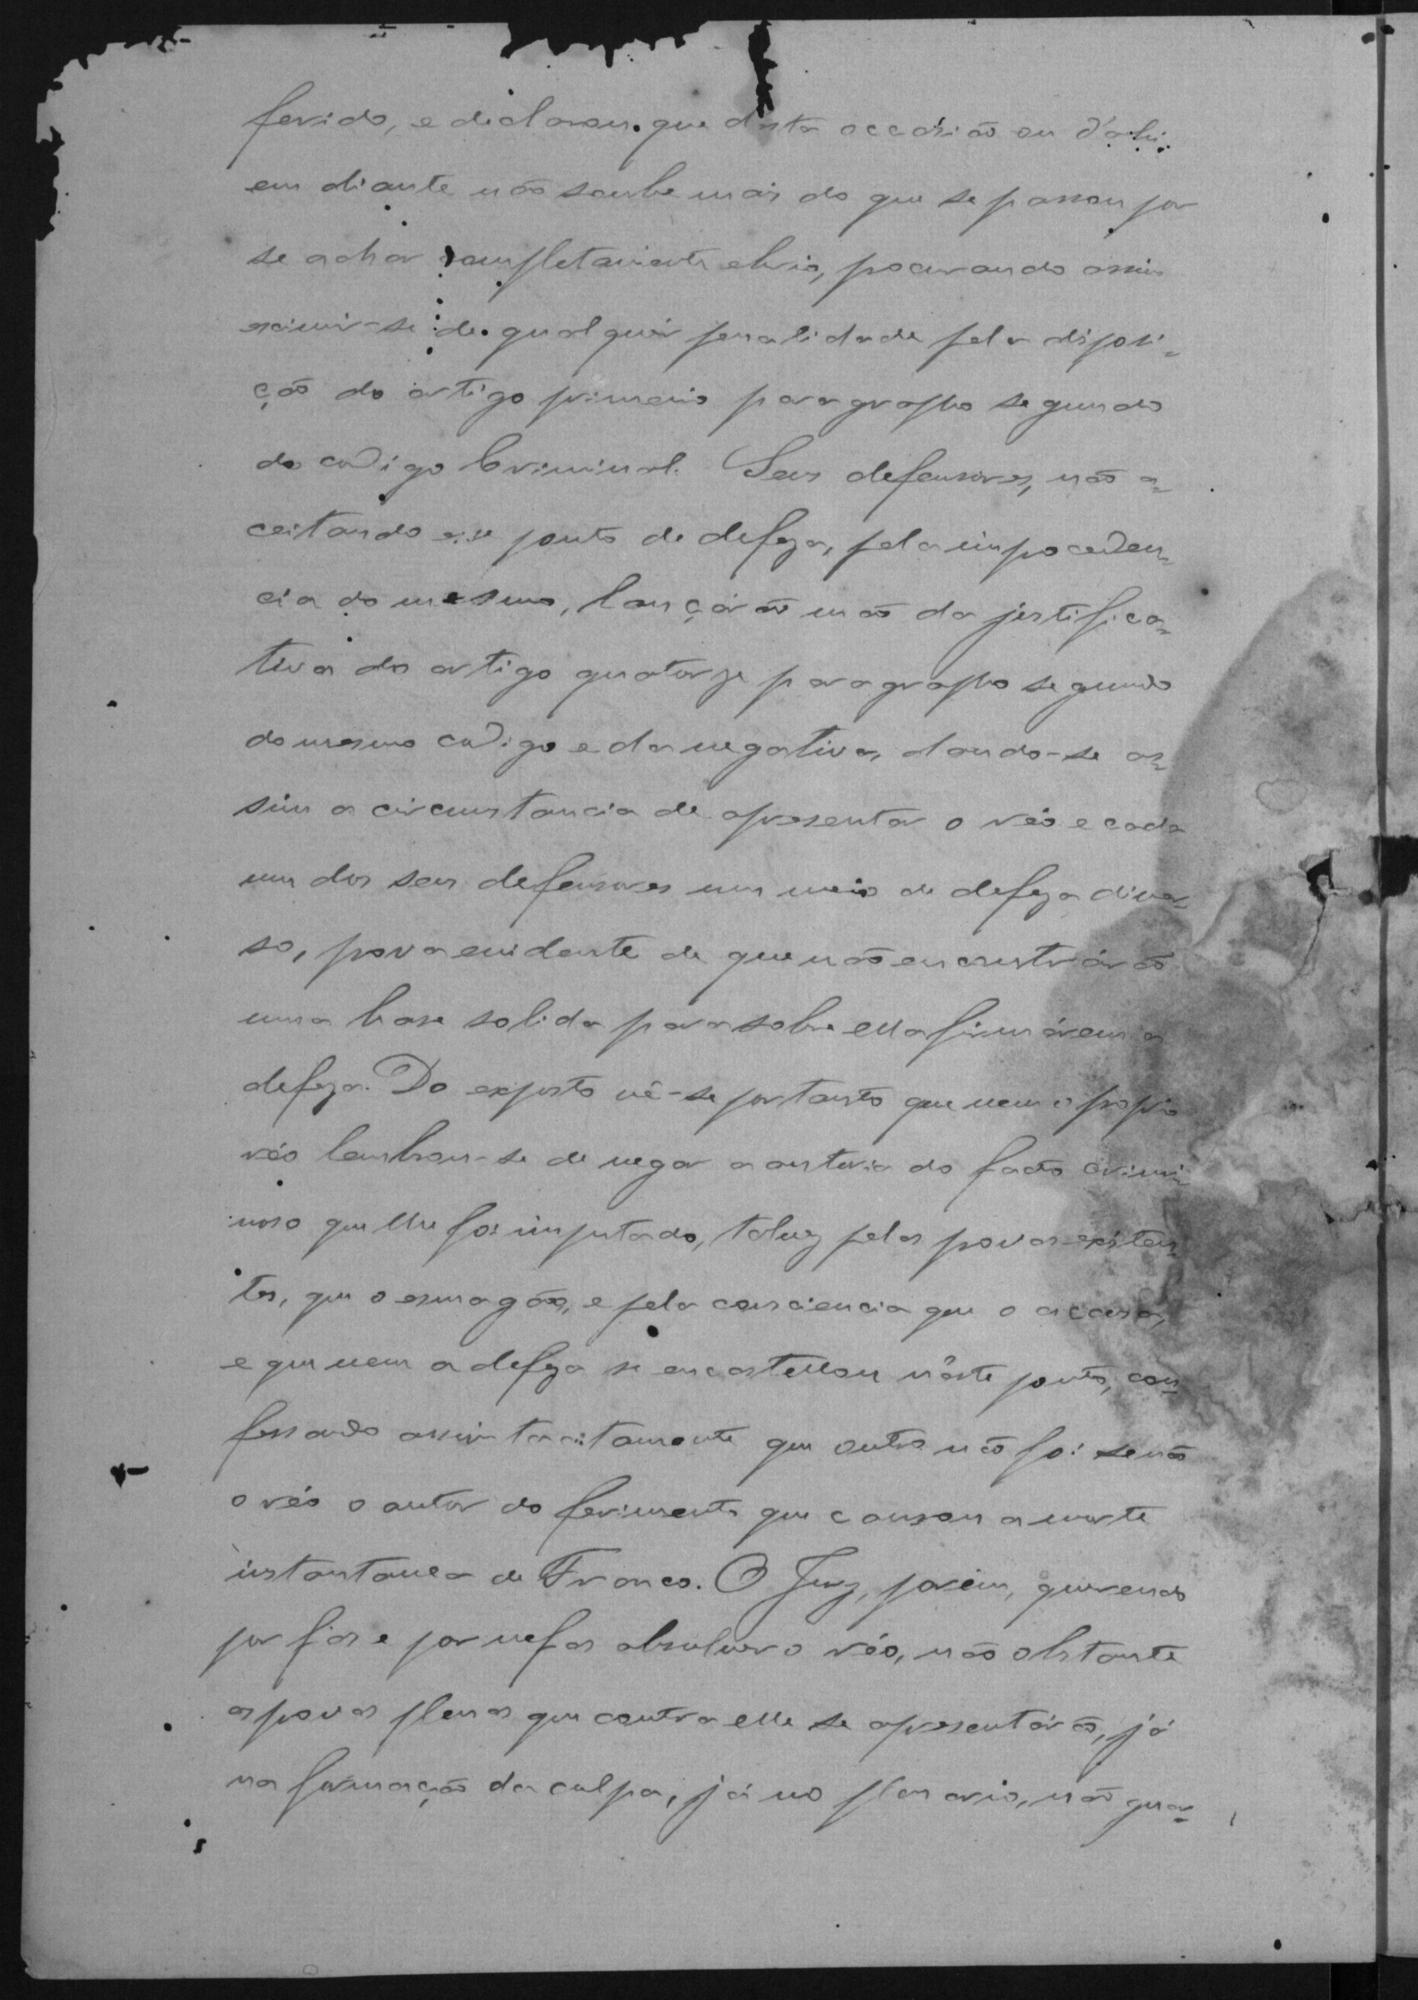 ferido, e declarou que d'esta occasião ou d'ahi
em diante não soube mais do que se passou por
se achar completamente ebrio, procurando assim
eximir-se de qualquer penalidade pela disposi-
ção do artigo primeiro paragrapho segundo
do codigo Criminal. Seus defensores, não a-
ceitando esse ponto de defeza, pela improceden-
cia do mesmo, lançárão mão da justifica-
tiva do artigo quatorze paragrapho segundo
do mesmo codigo e da negativa, dando-se as-
sim a circumstancia de apresentar o réo e cada
um dos seus defensores um meio de defeza diver-
so, prova evidente de que não encontrárão
uma base solida para sobre ella firmárem a
defeza. Do exposto vê-se portanto que nem o proprio
réo lembrou-se de negar a autoria do facto crimi-
noso que lhe foi imputado, talvez pelas provas existen-
tes, que o esmagão, e pela consciencia que o accusa,
e que nem a defeza se encastellou n'este ponto, con-
fessando assim tacitamente que outro não foi senão
o réo o autor do ferimento que causou a morte
instantanea de Franco. O Jury, porém, querendo
por fas e por nefas absolver o réo, não obstante
as provas plenas que contra elle se apresentárão, já
na formação da culpa, já no plenario, não guar-